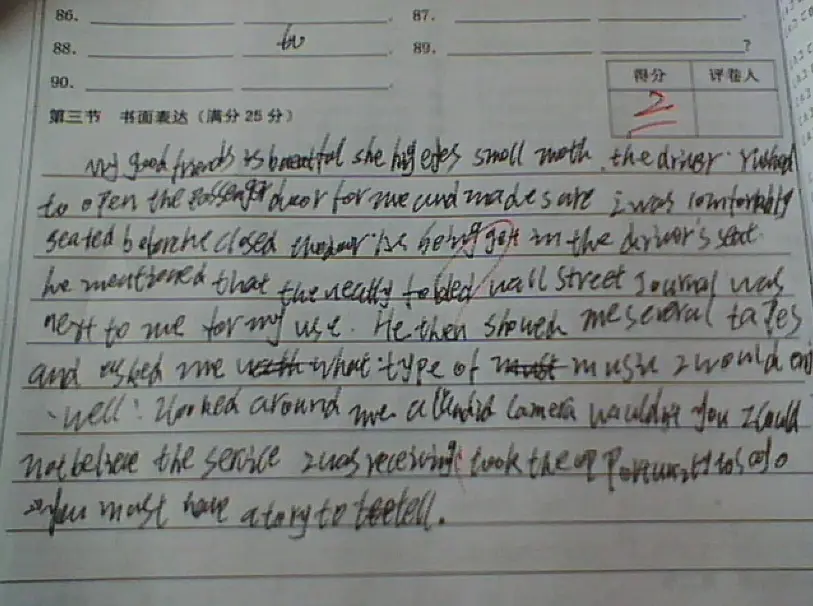 86. 87.
88. to 89. ?
90.
得分 评卷人
2
第三节 书面表达(满分25分)
My good friends is beautful she big eyes small moth. the driver rushed
to open the passenger door for me and made sare i was comfortably
seated before he closed he being got in the driver's seat.
he mentioned that the neatly folded wall Street Journal was
next to me for my use. He then showed me several tapes
and asked me what type of music I would enj
well! I looked around me a camera wouldn't you I could
not believe the service I was receiving! took the
you must have a tory to tell.